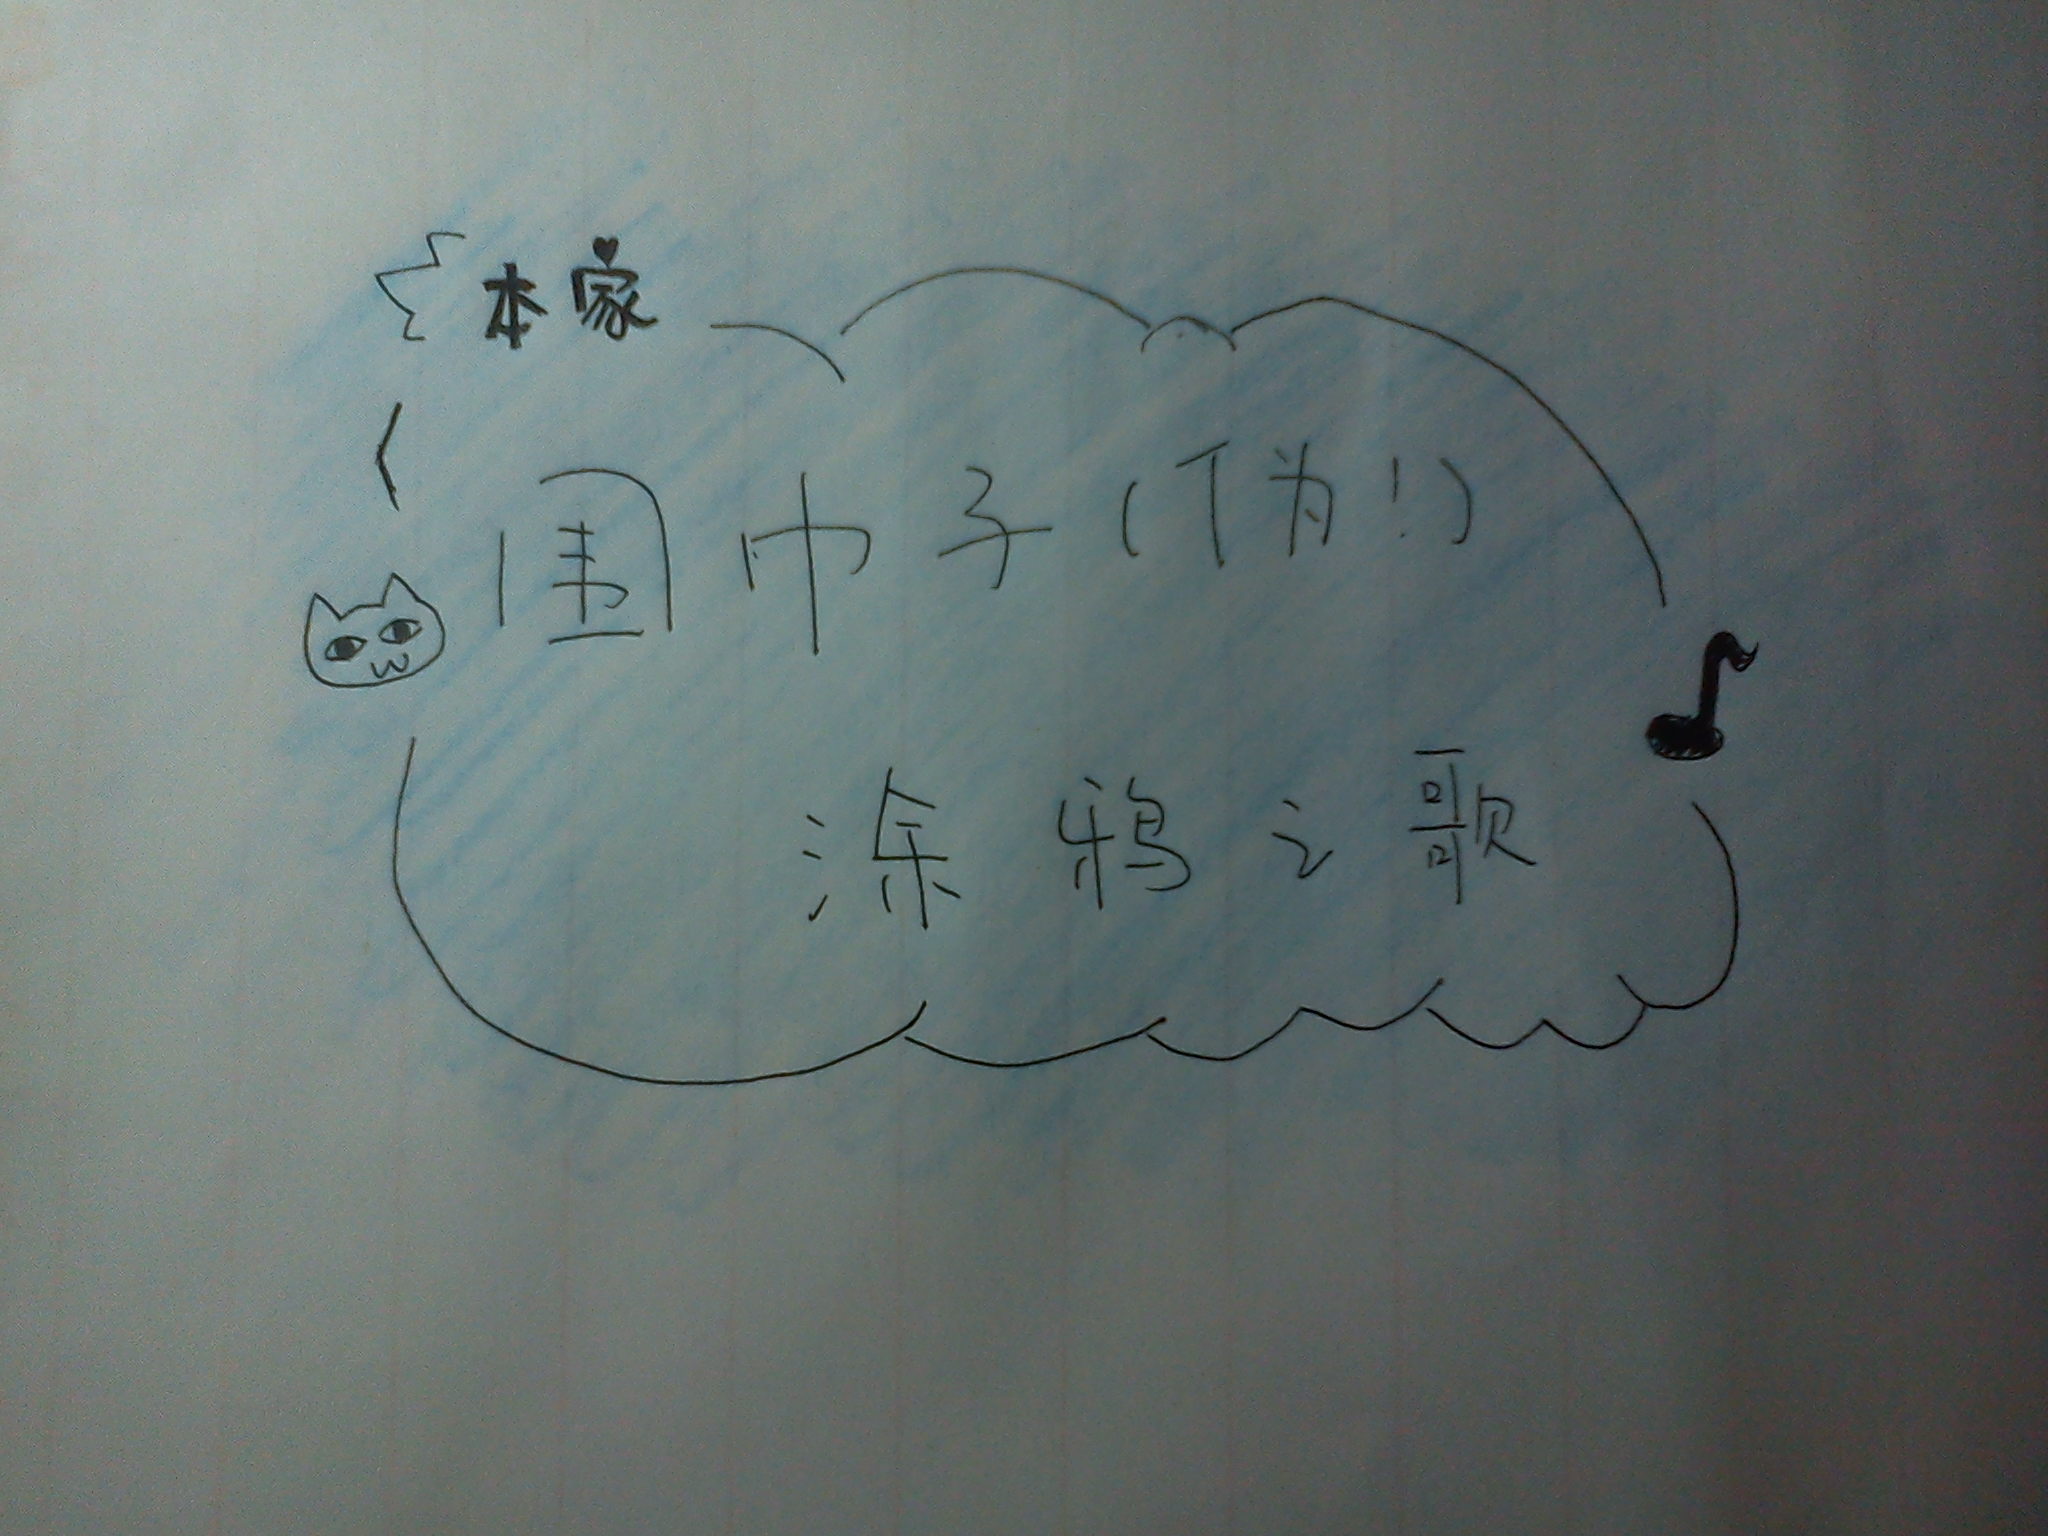 本家
围巾子(伪!)
涂鸦之歌